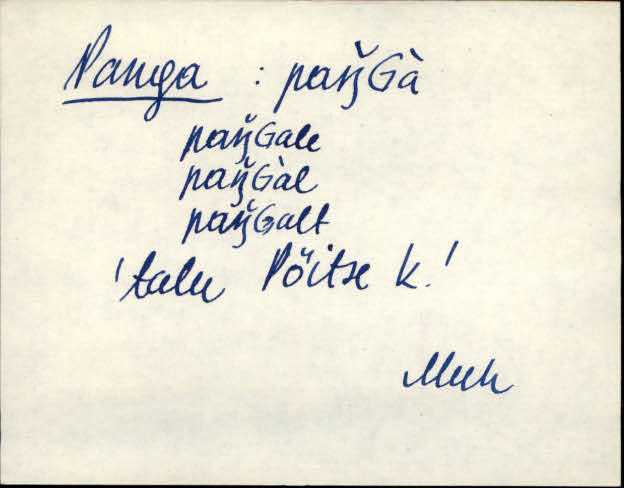 Panga : paŋ̆Gà
paŋ̆Gale
paŋ̆Gàl
paŋ̆Galt
'talu Põitse k.'
Muh